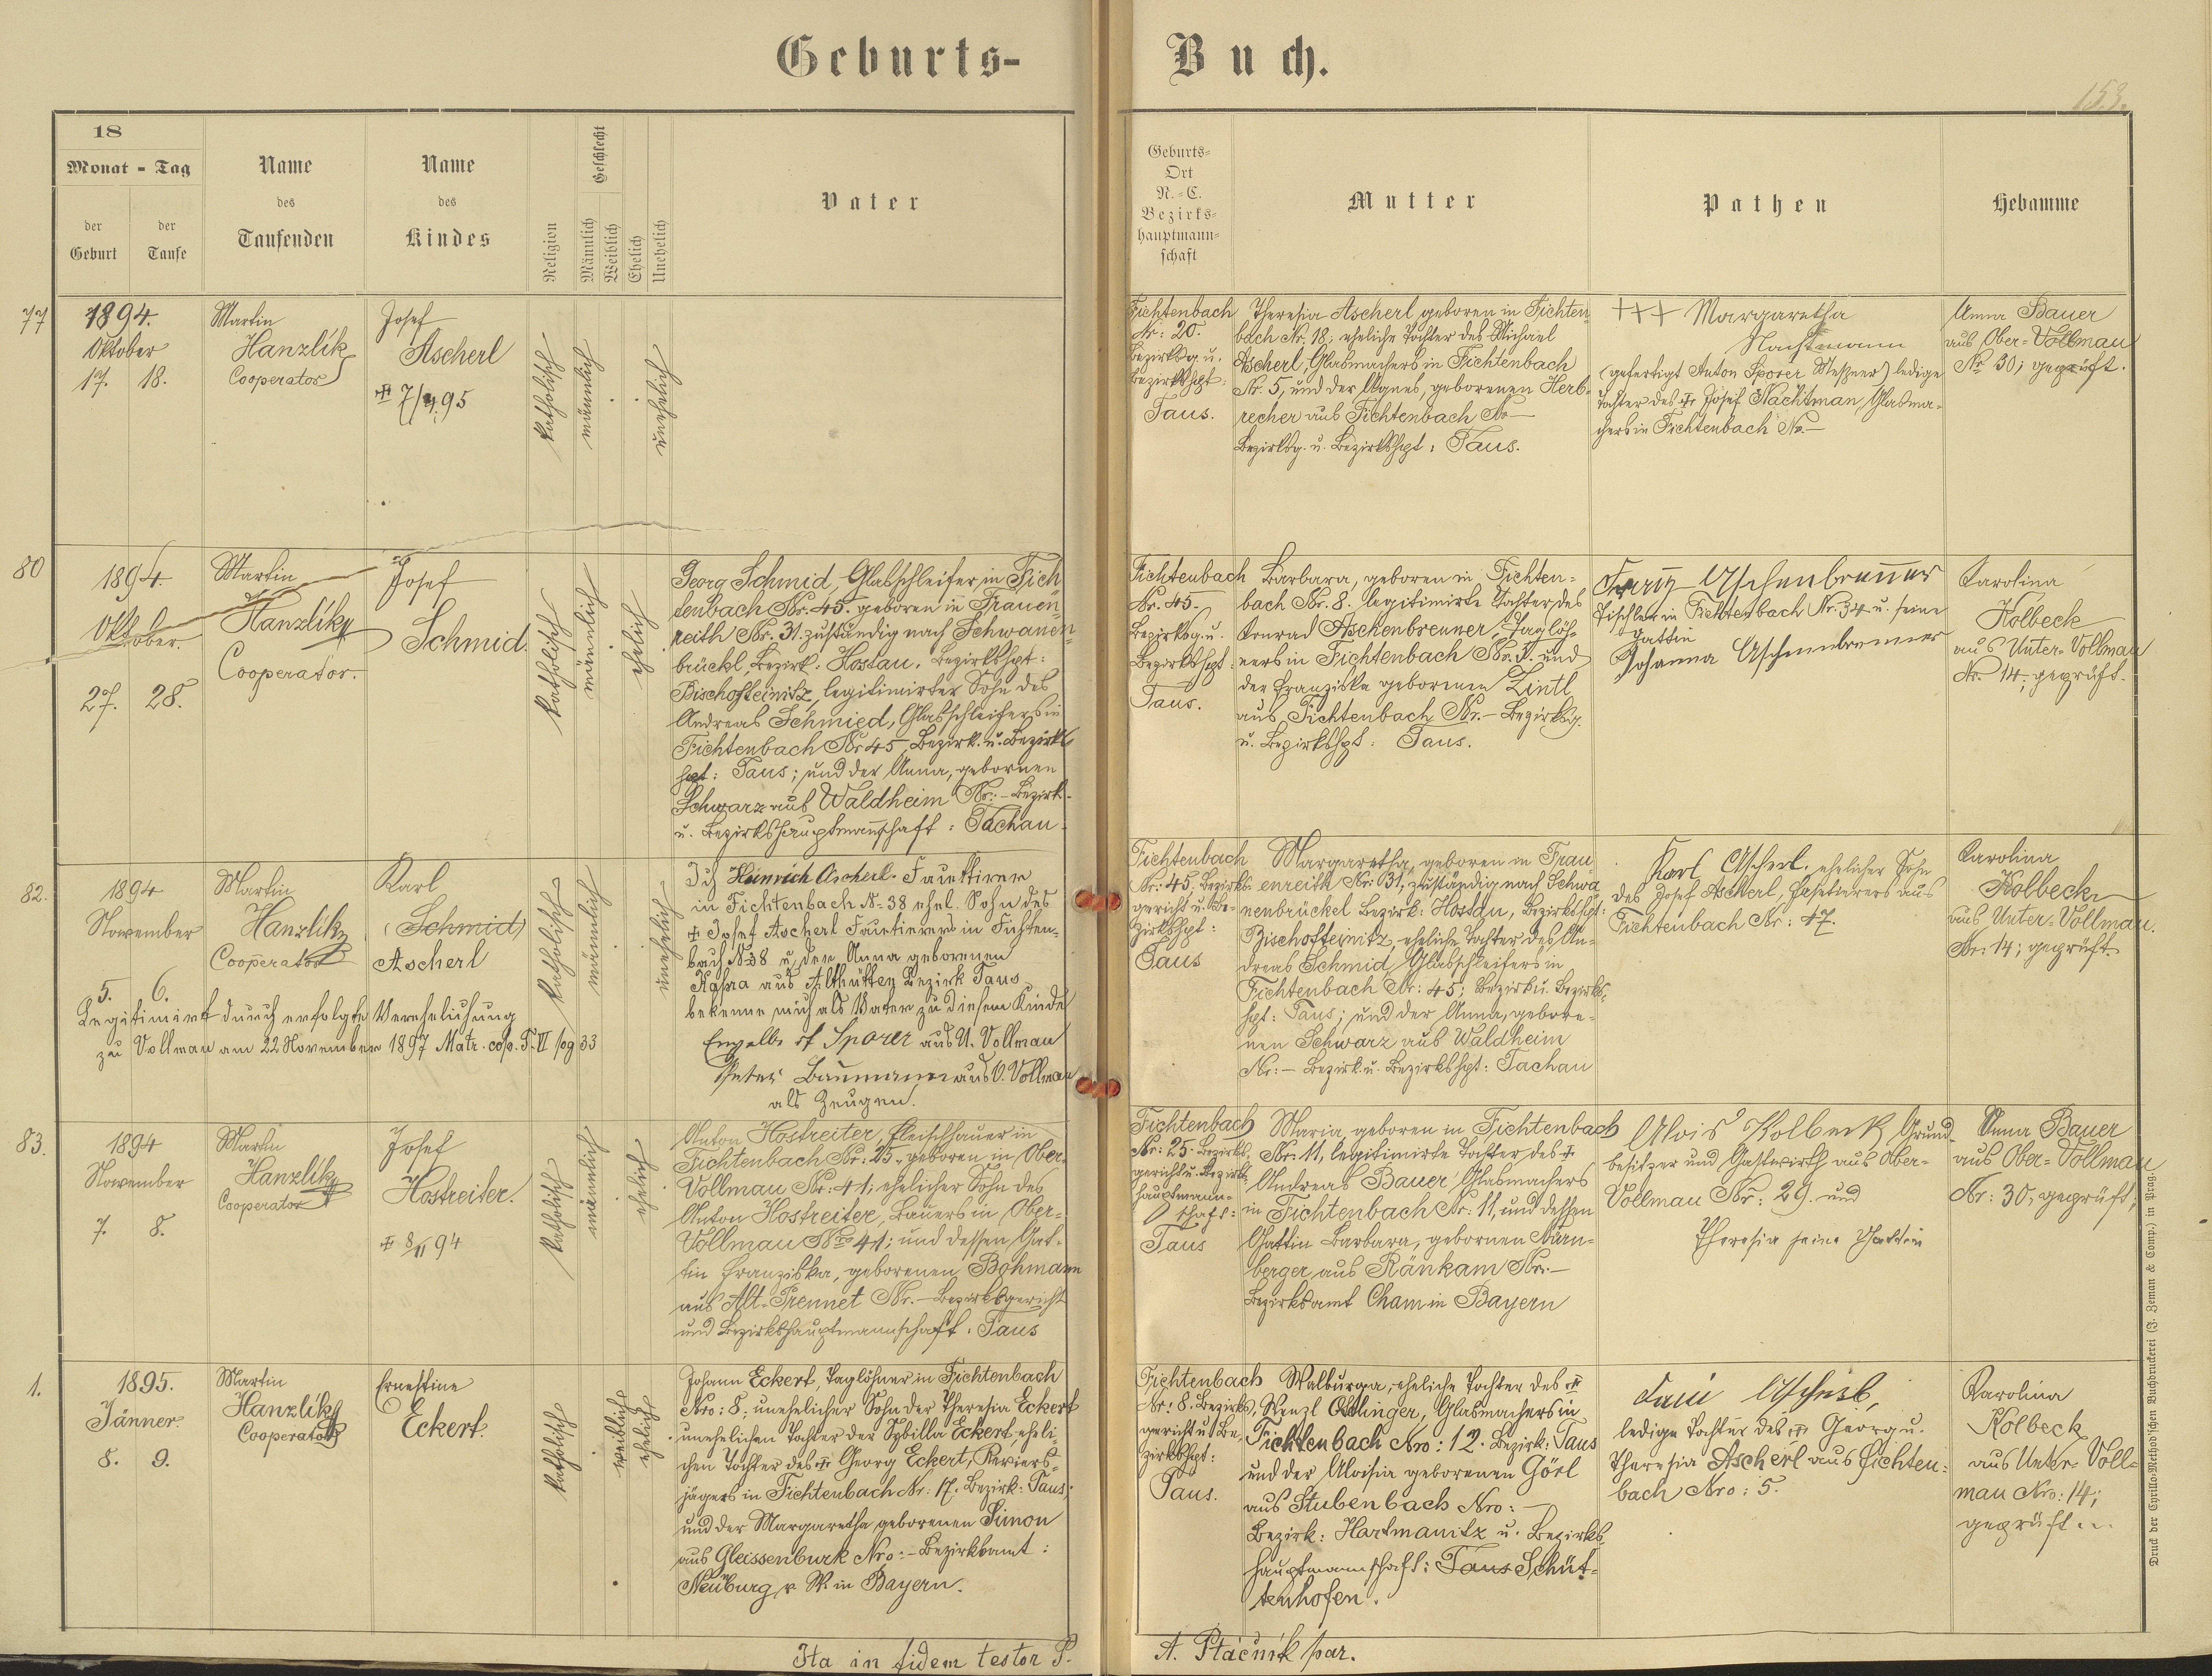 Geburts-
Buch.
153.
18
Monat - Tag
der Geburt
der Taufe
Name
des
Taufenden
Name
des
Kindes
Religion
Geschlecht
Männlich
Weiblich
Ehelich
Unehelich
Vater
Geburts-
Ort
N.-C.
Bezirks-
hauptmann-
schaft
Mutter
Pathen
Hebamme
77
1894.
Oktober
17. 18.
Martin
Hanzlík
Cooperator
Josef
Ascherl
katholisch
männlich
unehelich
Fichtenbach
Nr: 20.
Bezirksg. u.
Bezirkshpt:
Taus.
Theresia Ascherl geboren in Fichten-
bach Nr. 18, eheliche Tochter des Michael
Ascherl, Glasmachers in Fichtenbach
Nr. 5, und der Agnes, geborenen Herb-
recher aus Fichtenbach No —
Bezirksg. u. Bezirkshpt: Taus.
+++ Margaretha
Nachtmann
(gefertigt Anton Sporer Meßner) ledige
Tochter des + Josef Nachtman Glasma-
chers in Fichtenbach No. —
Anna Bauer
aus Ober-Vollmau
Nr. 30; geprüft.
80
1894.
Oktober.
27. 28.
Martin
Hanzlík
Cooperator.
Josef
Schmid
katholisch
männlich
ehelich
Georg Schmid, Glasschleifer in Fich
tenbach Nr. 45. geboren in Frauen-
reith Nr. 31. zuständig nach Schwanen-
brückl, Bezirk: Hostau, Bezirkshpt:
Bischofteinitz, legitimirter Sohn des
Andreas Schmied, Glasschleifers in
Fichtenbach Nr 45, Bezirk. u. Bezirks
hpt: Taus; und der Anna, gebornen
Schwarz aus Waldheim Nr: – Bezirk.
u. Bezirkshauptmannschaft: Tachau.
Fichtenbach
Nr. 45.
Bezirksg. u.
Bezirkshpt:
Taus.
Barbara, geboren in Fichten-
bach Nr. 8. legitimirte Tochter des
Konrad Aschenbrenner, Taglöh-
ners in Fichtenbach Nr. 3. und
der Franziska gebornen Zintl
aus Fichtenbach Nr. – Bezirksg.
u. Bezirkshpt: Taus.
Franz Aschenbrenner
Tischler in Fichtenbach Nr. 34 u. seine
Gattin
Johanna Aschenbrenner
Karolina
Kolbeck
aus Unter-Vollmau
Nr. 14; geprüft.
82.
1894
November
5. 6.
Martin
Hanzlík
Cooperator
Karl
(Schmid)
Ascherl
katholisch
männlich
unehelich
Legitimirt durch erfolgte Verehelichung
zu Vollmau am 22 November 1897 Matr. cop. T. VI pag 33
Ich Heinrich Ascherl. Facettirer
in Fichtenbach N- 38 ehel. Sohn des
+ Josef Ascherl Facetierers in Fichten-
bach N- 38 u. der Anna geborenen
aus Althütten Bezirk Taus
bekenne mich als Vater zu diesem Kinde
Sporer aus U. Vollmau
Peter Baumann aus O. Vollmau
als Zeugen.
Fichtenbach
Nr: 45; Bezirks-
gericht u. Be-
zirkshpt:
Taus
Margaretha, geboren in Frau
enreith Nr. 31, zuständig nach Schwa
nenbrückel Bezirk: Hostau, Bezirkshpt:
Bischofteinitz, eheliche Tochter des An-
dreas Schmid, Glasschleifers in
Fichtenbach Nr: 45; Bezirk u. Bezirks-
hpt: Taus; und der Anna, gebore-
nen Schwarz aus Waldheim
Nr: – Bezirk. u. Bezirkshpt: Tachau
Karl Ascherl, ehelicher Sohn
des Josef Ascherl, Facetierers aus
Fichtenbach Nr: 47.
Karolina
Kolbeck
aus Unter-Vollmau.
Nr: 14; geprüft.
83.
1894
November
7. 8.
Martin
Hanzlík
Cooperator
Josef
Hostreiter.
+ 8/11 94
katholisch
männlich
ehelich
Anton Hostreiter, Fleischhauer in
Fichtenbach Nr: 25, geboren in Ober-
Vollmau Nr: 41; ehelicher Sohn des
Anton Hostreiter, Bauers in Ober-
Vollmau Nro 41; und dessen Gat-
tin Franziska, geborenen Bohmann
aus Alt-Prennet Nr. – Bezirksgericht
und Bezirkshauptmannschaft: Taus
Fichtenbach
Nr: 25. Bezirks-
gericht u. Bezirks-
hauptmann-
schaft:
Taus
Maria geboren in Fichtenbach
Nr: 11, legitimirte Tochter des +
Andreas Bauer, Glasmachers
in Fichtenbach Nr: 11, und dessen
Gattin Barbara, gebornen Nürn-
berger aus Ränkam Nr: –
Bezirksamt Cham in Bayern
Alois Kolbeck Grund-
besitzer und Gastwirth aus Ober-
Vollmau Nr: 29. und
Theresia seine Gattin
Anna Bauer
aus Ober-Vollmau
Nr: 30; geprüft;
1.
1895.
Jänner
8. 9.
Martin
Hanzlík
Cooperator
Ernestine
Eckert.
katholisch
weiblich
ehelich
Johann Eckert, Taglöhner in Fichtenbach
Nro: 8; unehelicher Sohn der Theresia Eckert
unehelichen Tochter der Sybilla Eckert, eheli-
chen Tochter des + Georg Eckert, Reviers-
jägers in Fichtenbach Nr: 17. Bezirk: Taus;
und der Margaretha geborenen Simon
aus Gleissenburk Nro: – Bezirksamt:
Neuburg v W. in Bayern.
Fichtenbach
Nr: 8. Bezirks-
gericht u. Be-
zirkshpt:
Taus.
Walburga, eheliche Tochter des +
Wenzl Ödlinger, Glasmachers in
Fichtenbach Nro: 12. Bezirk: Taus
und der Aloisia geborenen Görl
aus Stubenbach Nro: —
Bezirk: Hartmanitz u. Bezirks-
hauptmannschaft: Taus Schüt-
tenhofen.
Fani Ascherl,
ledige Tochter des + Georg u.
Theresia Ascherl aus Fichten-
bach Nro: 5.
Karolina
Kolbeck
aus Unter-Voll-
mau Nro: 14;
geprüft
Ita in fidem testor P.
A. Ptáčník par.
Druck der Cyrillo-Method'schen Buchdruckerei (J. Zeman & Comp.) in Prag.